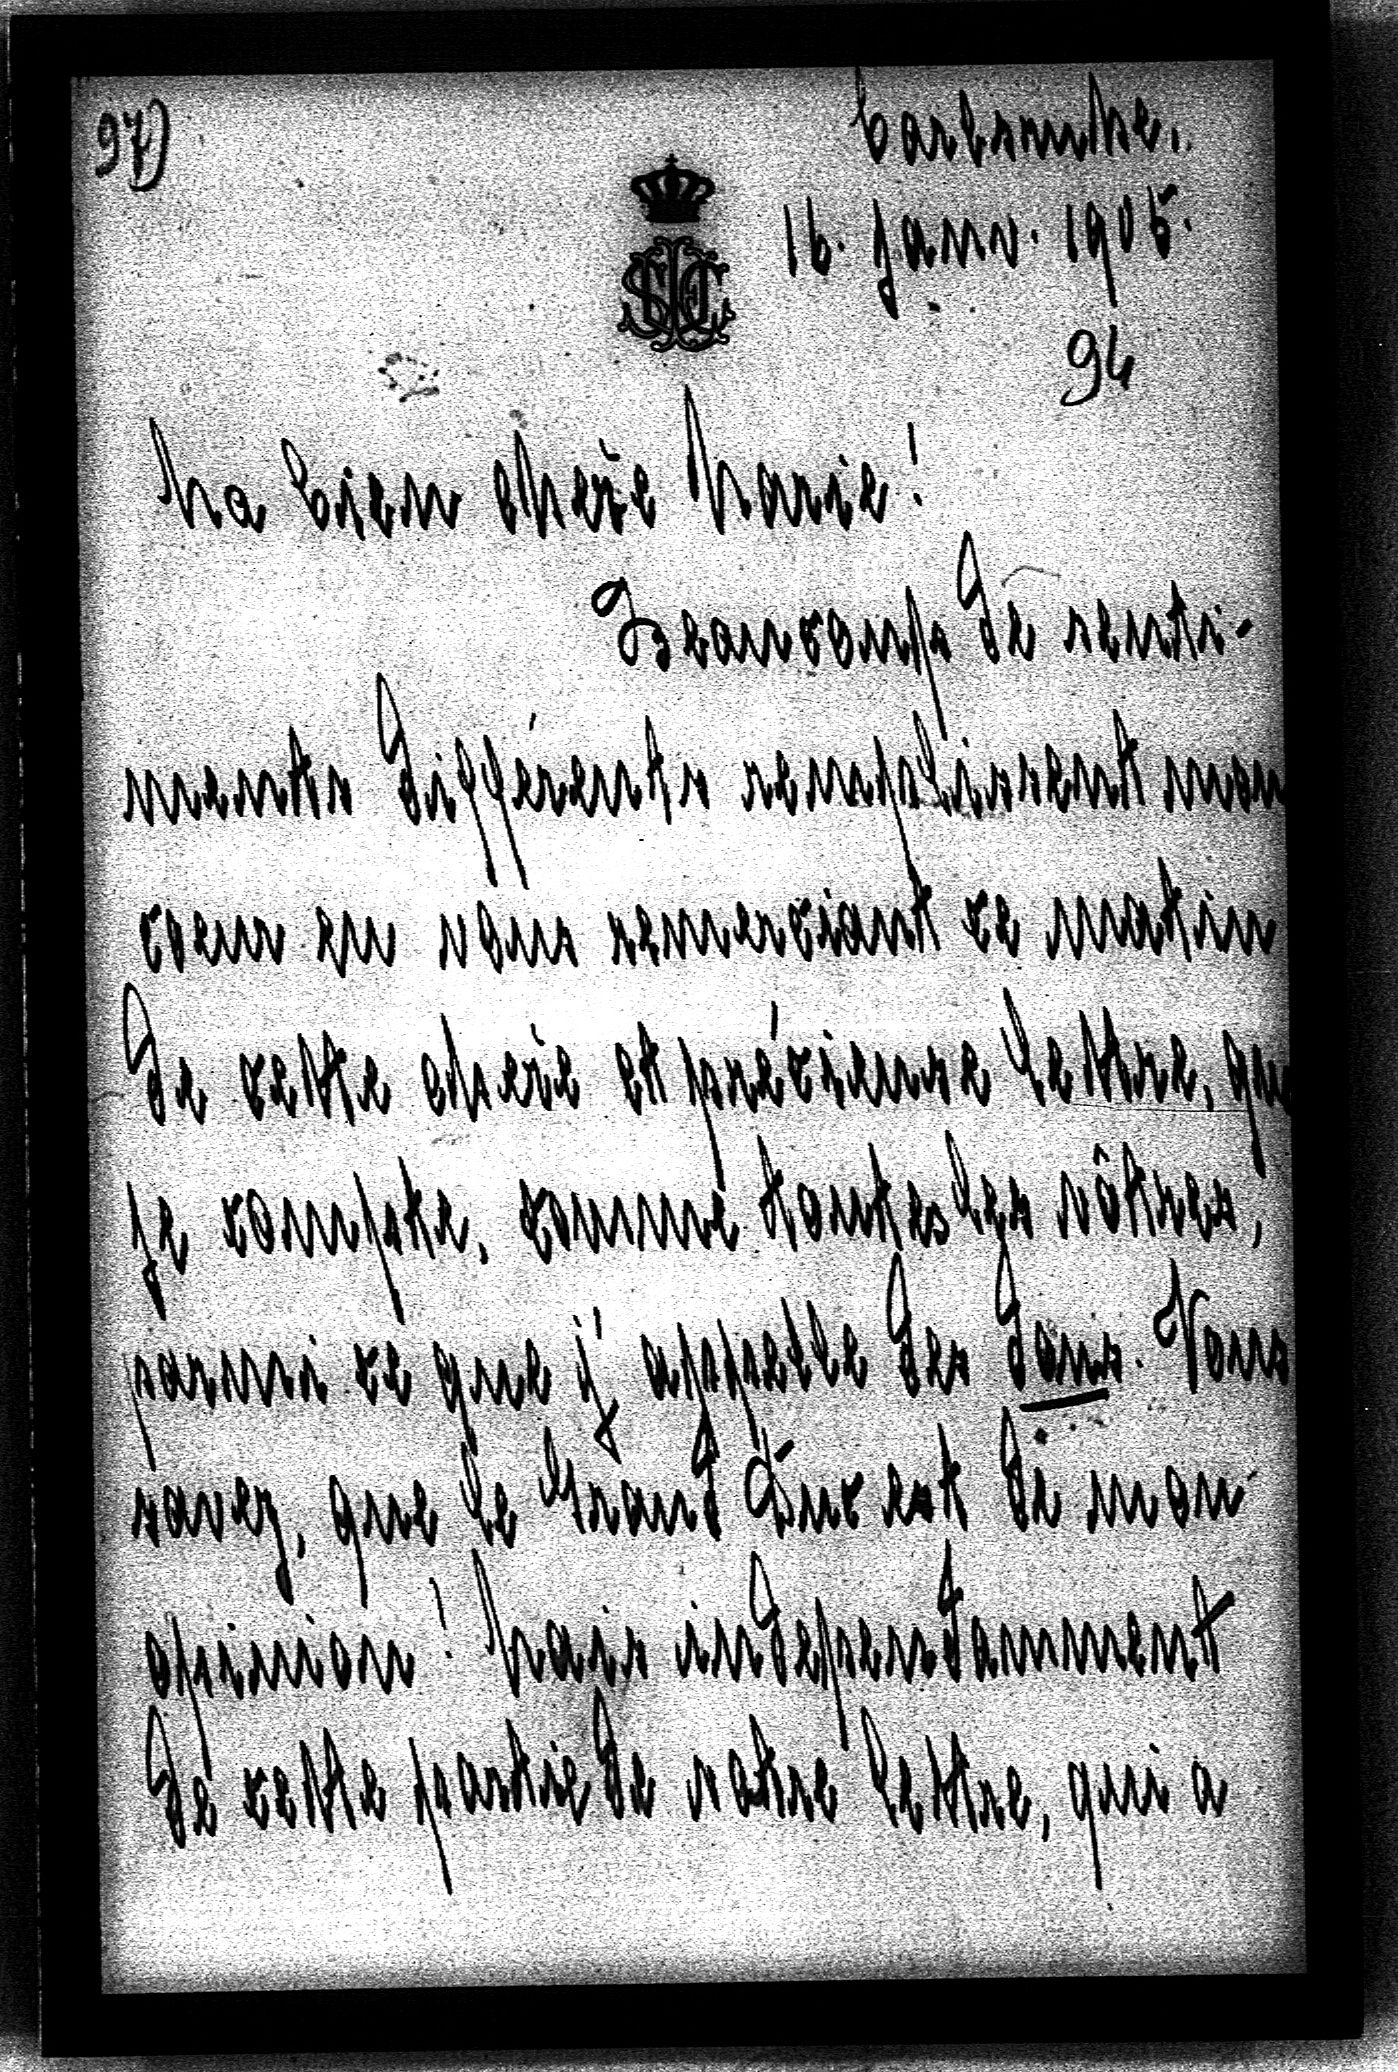 97)
Carlsruhe.
16. Janv. 1905.
94
Ma bien chère Marie!
Beaucoup de senti-
ments différents remplissent mon
coeur en vous remerciant ce matin
de cette chère et précieuse lettre, que
je compte, comme toutes les vôtres,
parmi ce que j'appelle des dons. Vous
savez, que le Grand Duc est de mon
opinion! Mais indépendamment
de cette partie de votre lettre, qui a